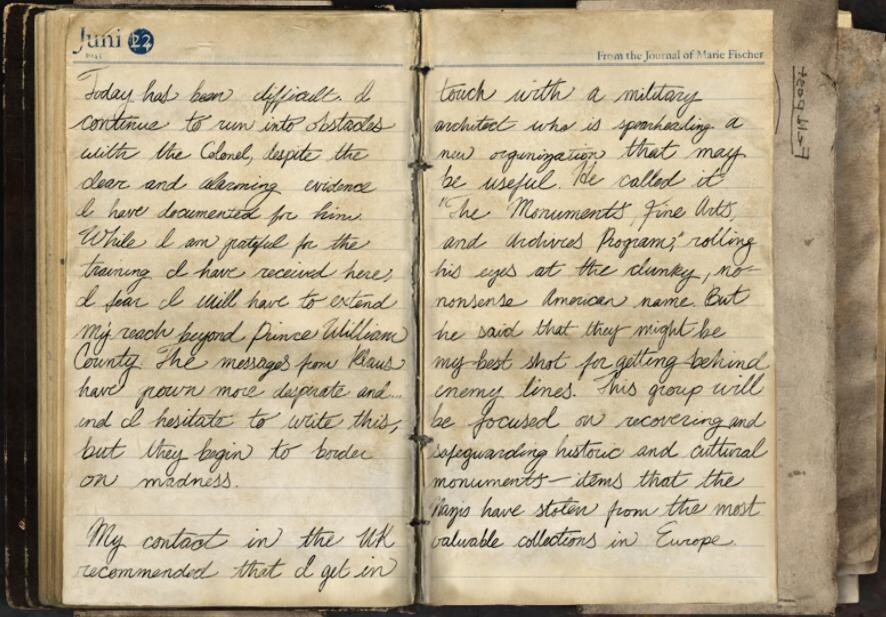 Juni 22
From the Journal of Marie Fischer
Today has been difficult. I
continue to run into obstacles
with the Colonel, despite the
clear and alarming evidence
I have documented for him.
While I am grateful for the
training I have received here,
I fear I will have to extend
my reach beyond Prince William
County. The messages from Klaus
have grown more desperate and...
and I hesitate to write this,
but they begin to border
on madness.
My contact in the UK
recommended that I get in
touch with a military
architect who is spearheading a
new organization that may
be useful. He called it
"The Monuments, Fine Arts,
and Archives Program," rolling
his eyes at the clunky, no-
nonsense American name. But
he said that they might be
my best shot for getting behind
enemy lines. This group will
be focused on recovering and
safeguarding historic and cultural
monuments—items that the
Nazis have stolen from the most
valuable collections in Europe.